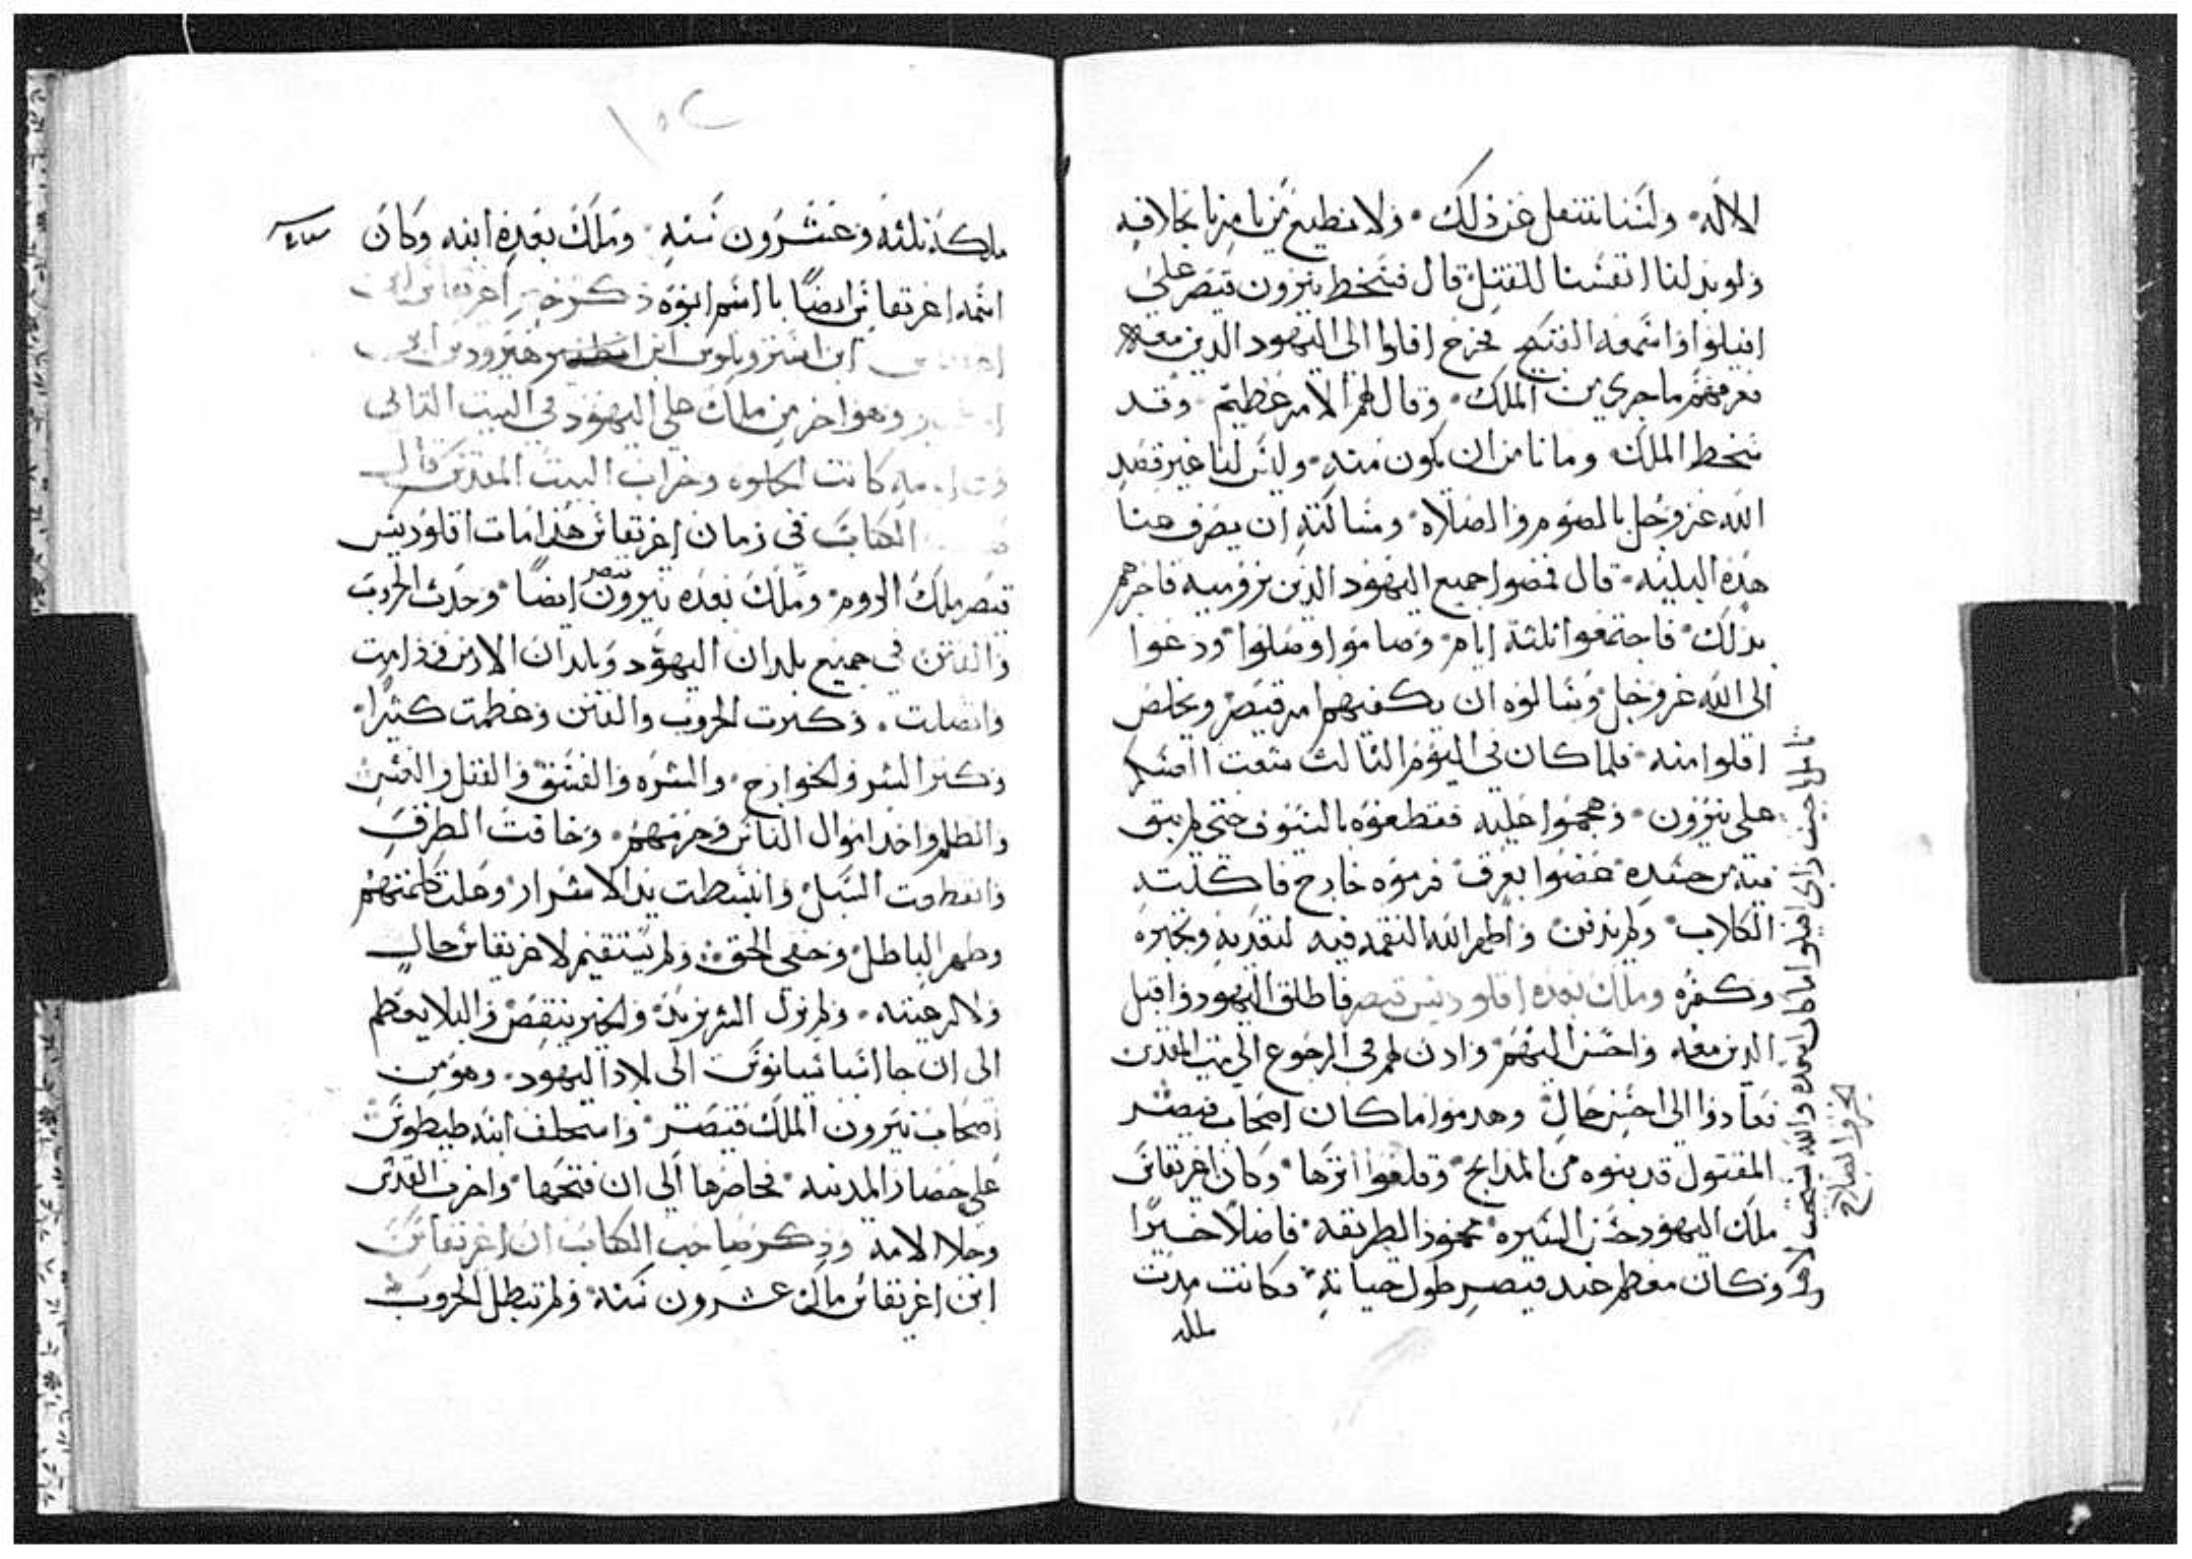 الاله ولسنا ننتقل عن ذلك ولا نطيع من يامرنا بخلافه
ولو بذلنا انفسنا للقتل قال فسخط نيرون قيصر على
افيلوا واسمعه القبيح فخرج افلوا الى اليهود الدين معه
فعرفهم ما جرى من الملك وقال لهم الامر عظيم وقد
سخط الملك وما نامن ان يكون منه وليس لنا غير قصد
الله عز وجل بالصوم والصلاه ومسالته ان يصرف عنا
هذه البليه قال فمضوا جميع اليهود الذين بروميه فاخبرهم
بذلك فاجتمعوا ثلثة ايام وصاموا وصلوا ودعوا
الى الله عز وجل وسالوه ان يكفيهم امر قيصر ويخلص
افلوا منه فلما كان في اليوم الثالث شغب العسكر
على نيرون وهجموا عليه فقطعوه بالسيوف حتى لم يبق
فيه من جسده عضوا يعرف فرموه خارج فاكلته
الكلاب ولم يدفن واظهر الله النقمه فيه لتعديه وتجبره
وكفره وملك بعده اقلوديس قيصر فاطلق اليهود واقبل
الدين معه واحسن اليهم واذن لهم في الرجوع الى بيت المقدس
فعادوا الى احسن حال وهدموا ما كان اصحاب قيصر
المقتول قد بنوه من المذابح وقلعوا اثرها وكان اغريقاس
ملك اليهود حسن السيره محمود الطريقه فاضلا خيرا
وكان معظم عند قيصر طول حياته وكانت مدت
ملكه
ملكه ثلثه وعشرون سنه وملك بعده ابنه وكان
اسمه اغريقاس ايضا باسم ابوه ذكر خبر اغريقاس ابن
ابن استروبلوس ابن هيرودس
وهو اخر من ملك على اليهود في البيت الثاني
كانت الجلوه وخراب البيت المقدس قال
الكتاب في زمان اغريقاس هذا مات اقلوديس
قيصر ملك الروم وملك بعده نيرون قيصر ايضا وحدث الحروب
والفتن في جميع بلدان اليهود وبلدان الارمن
واتصلت وكثرت الحروب والفتن وعظمت كثيرا
وكثر الشر والخوارج والشره والفسق والقتل والفتن
والظلم واخذ اموال الناس وحرمهم وخافت الطرق
وانقطعت السبل وانبسطت يد الاشرار وعلت كلمتهم
وظهر الباطل وخفي الحق ولم يستقيم لاغريقاس حال
ولا لرعيته ولم يزل الشر يزيد والخير ينتقص والبلا يعظم
الى ان جا اسباسيانوس الى بلاد اليهود وهو من
اصحاب نيرون الملك قيصر واستخلف ابنه طيطوس
على حصار المدينه فحاصرها الى ان فتحها واخرب القدس
وجلا الامه وذكر صاحب الكتاب ان اغريقاس
ابن اغريقاس ملك عشرون سنه ولم تبطل الحروب